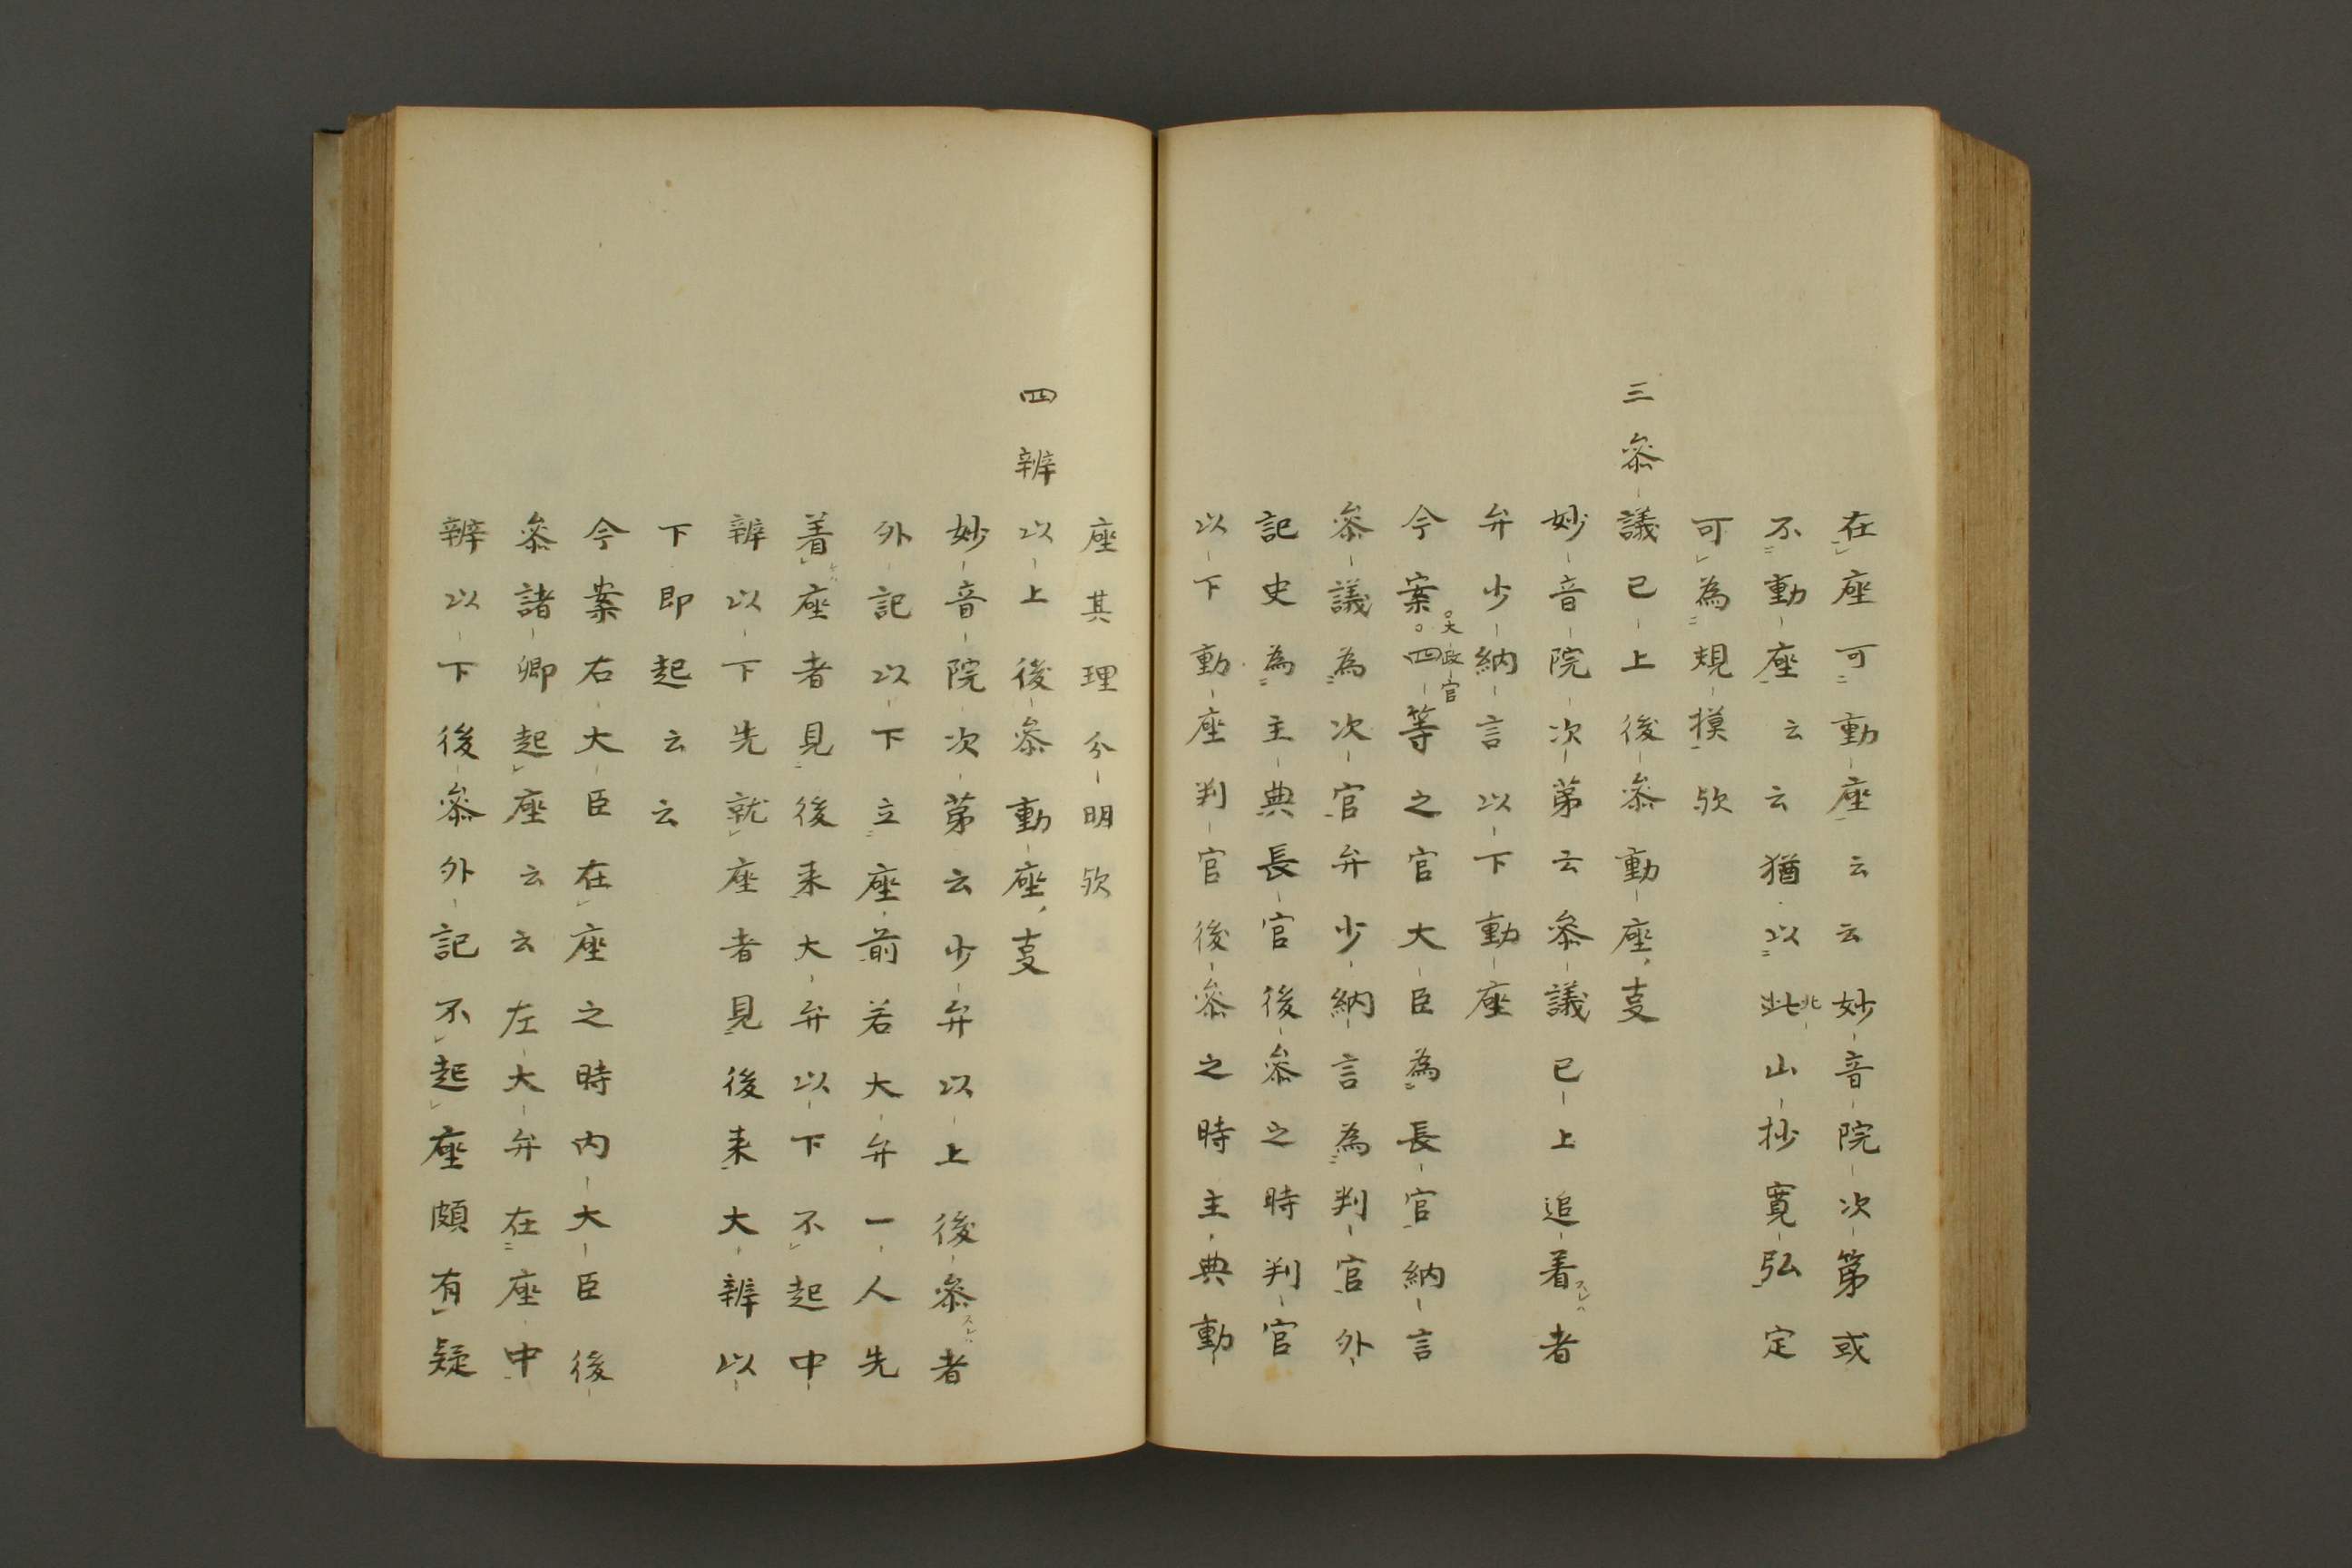 在座可動座云云妙音院次第或
不動座云云猶以此北山抄寛弘定
可為規摸欤
三参議已上後参動座事
妙音院次第云参議已上追着スレハ者
弁少納言以下動座
今案。四等之官大臣為長官納言
太政官
参議為次官弁少納言為判官外
記史為主典長官後参之時判官
以下動座判官後参之時主典動
座其理分明欤
四辨以上後参動座事
妙音院次第云少弁以上後参スレハ者
外記以下立座前若大弁一人先
着座者見後来大弁以下不起中
辨以下先就座者見後来大辨以
下即起云云
今案右大臣在座之時内大臣後
参諸卿起座云云左大弁在座中
辨以下後参外記不起座頗有疑